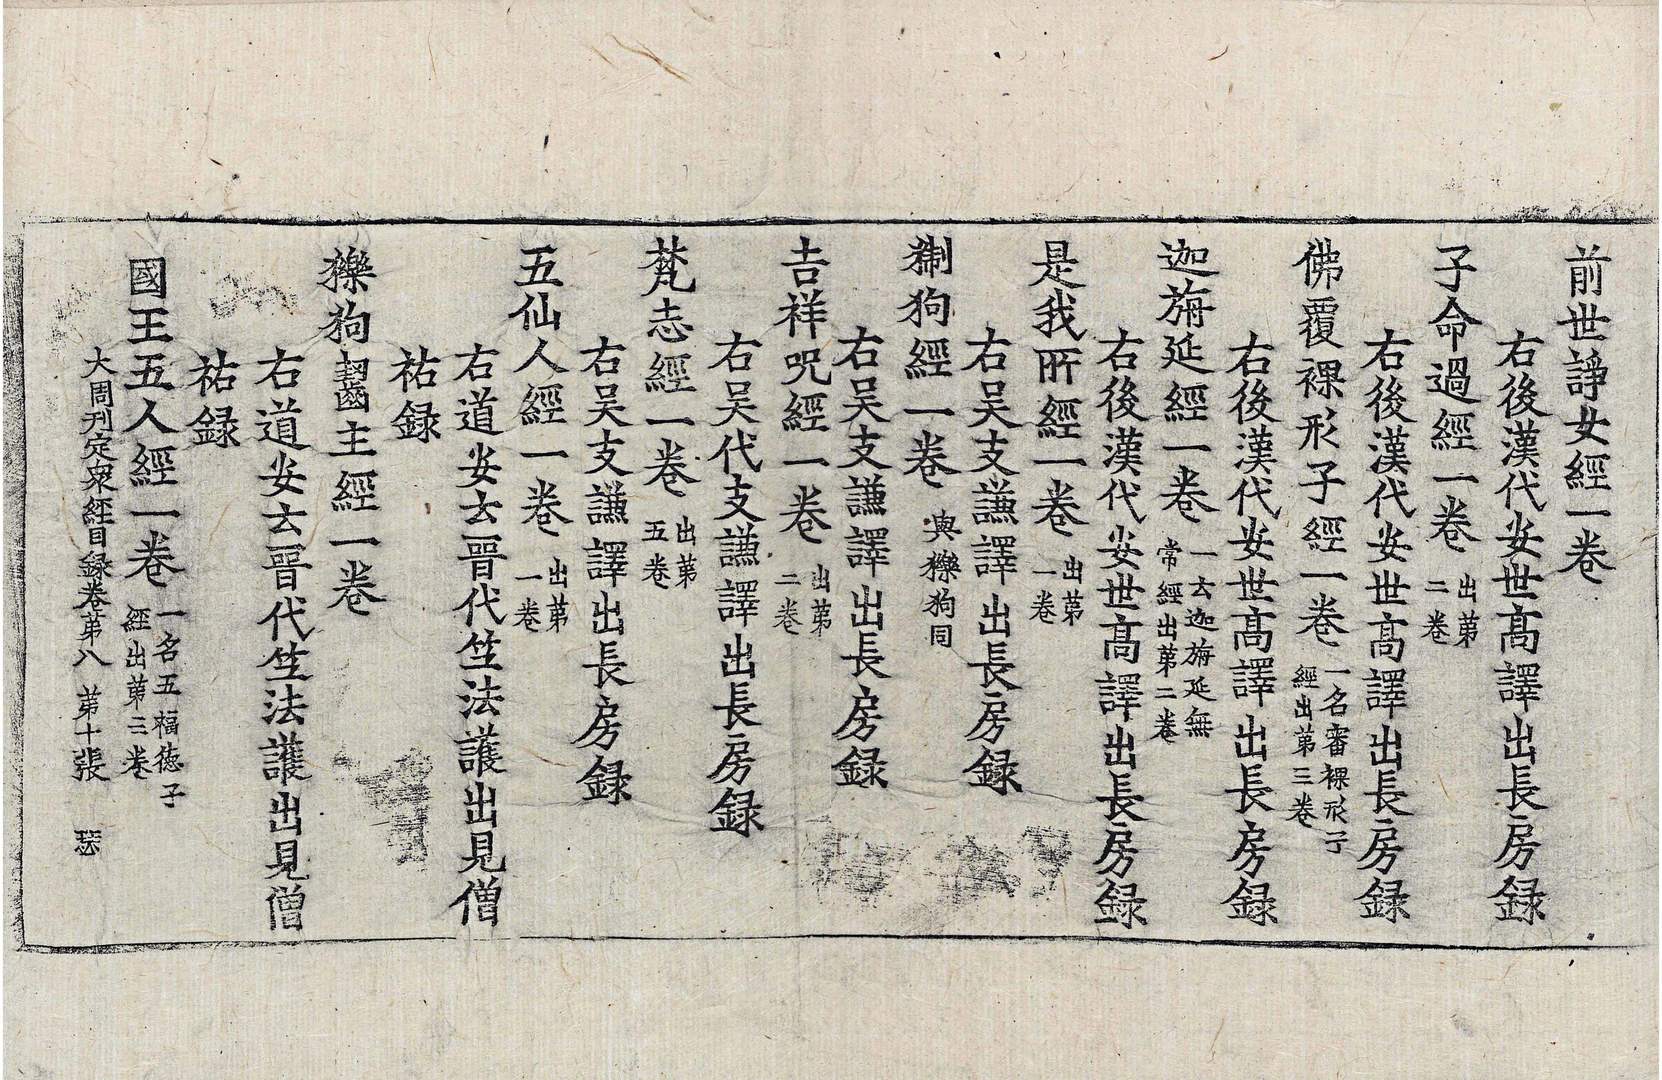 前世諍女經一卷
右後漢代安世髙譯出長房録
子命過經一卷 出第二卷
右後漢代安世髙譯出長房録
佛覆裸形子經一卷 一名審裸形子經出第三卷
右後漢代安世髙譯出長房録
迦旃延經一卷 一云迦旃延無常經出第二卷
右後漢代安世髙譯出長房録
是我所經一卷 出第一卷
右吴支謙譯出長房録
猘狗經一卷 與㹱狗同
右吴支謙譯出長房録
吉祥呪經一卷 出第二卷
右吴代支謙譯出長房録
梵志經一卷 出第五卷
右吴支謙譯出長房録
五仙人經一卷 出第一卷
右道安云晋代竺法護出見僧
祐録
㹱狗齧主經一卷
右道安云晋代竺法護出見僧
祐録
國王五人經一卷 一名五福德子經出第三卷
大周刊定衆經目録卷第八 第十張